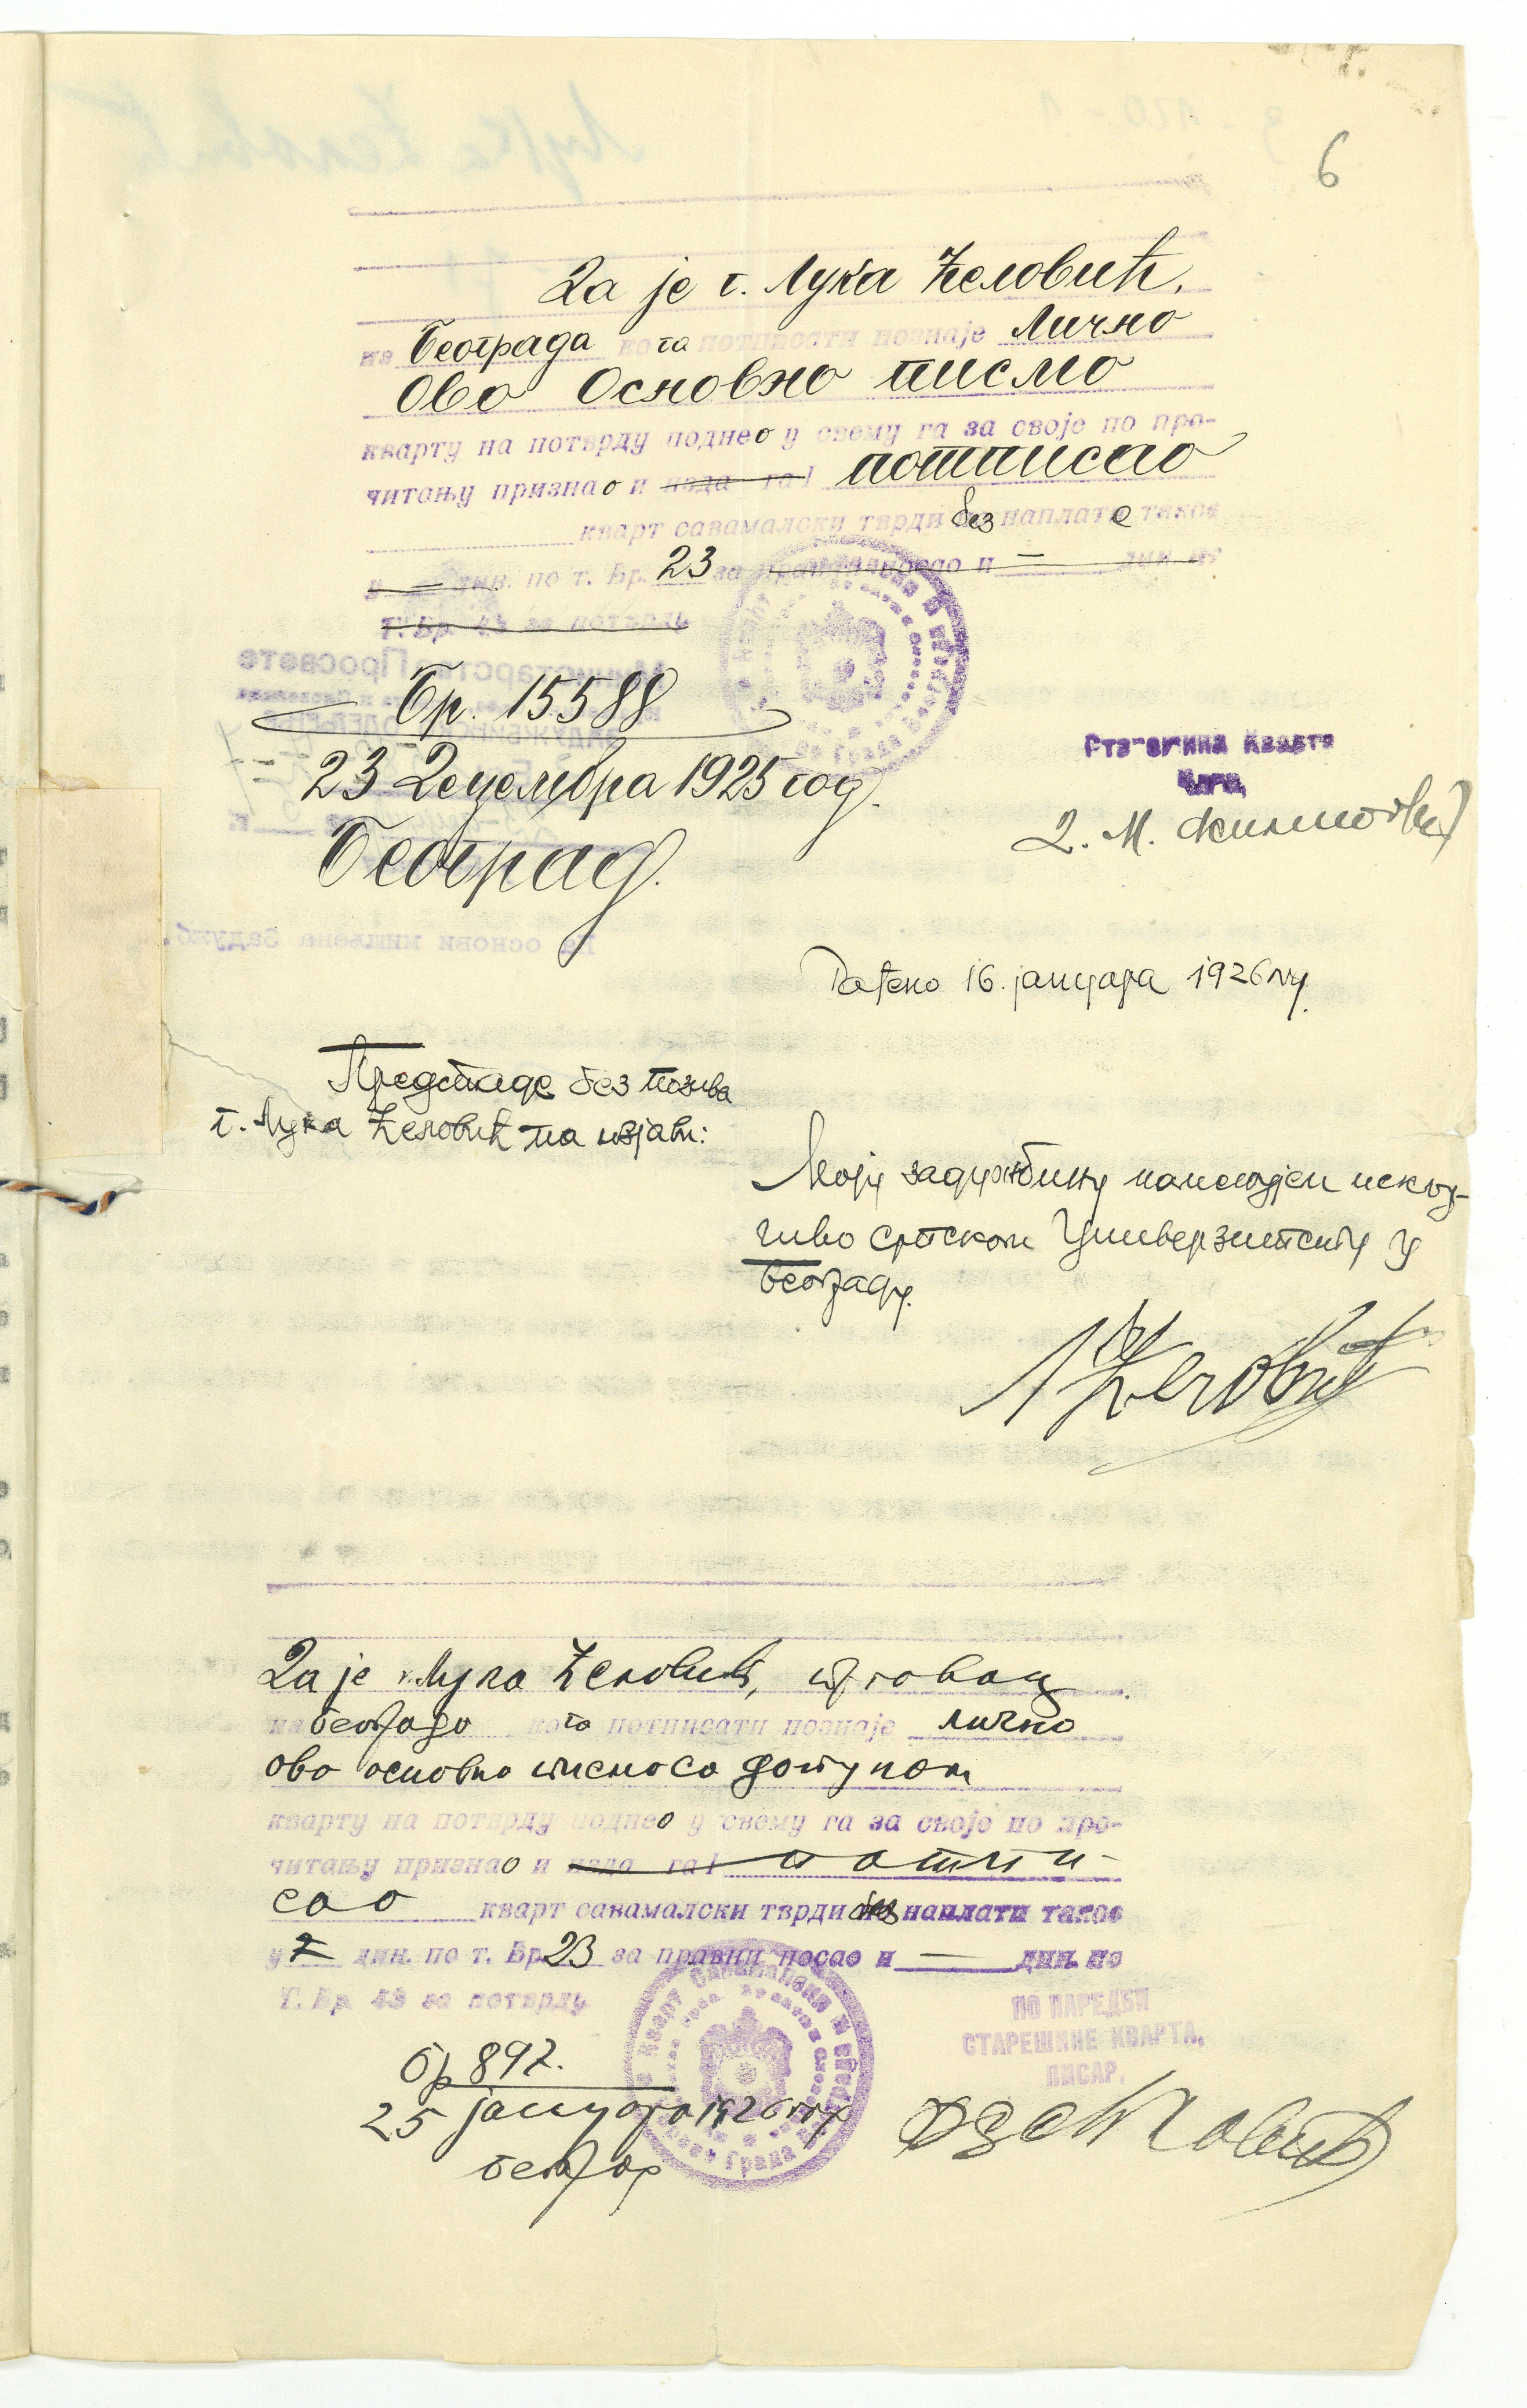 6
Да је г. Лука Ћеловић.
из Београда кога потписати познаје Лично
Ово Основно писмо
кварту на потврду поднео у свему га за своје по про-
читању признао и изда га потписао
кварт савамалски тврди без наплате таксе
у — дин. по т. Бр. 23 за правни посао и — дин. по
Т. Бр. 43 за потврду
Бр. 15588
23 Децембра 1925 год.
Београд.
Старешина Кварта
Члан,
Д. М.
Рађено 16. јануара 1926 год.
Предстаде без позива
г. Лука Ћеловић па изјави:
Моју задужбину намењујем искљу-
чиво српском Универзитету у
Београду.
Л Ћеловић
Да је г. Лука Ћеловић, трговац
из Београда кога потписати познаје лично
ово основно писмо са допуном
кварту на потврду поднео у свему га за своје по про-
читању признао и изда га потпи-
сао кварт савамалски тврди без наплати таксе
у дин. по т. Бр. 23 за правни посао и — дин. по
Т. Бр. 43 за потврду
Бр 897.
25 јануара 1926 год
Београд
ПО НАРЕДБИ
СТАРЕШИНЕ КВАРТА,
ПИСАР,